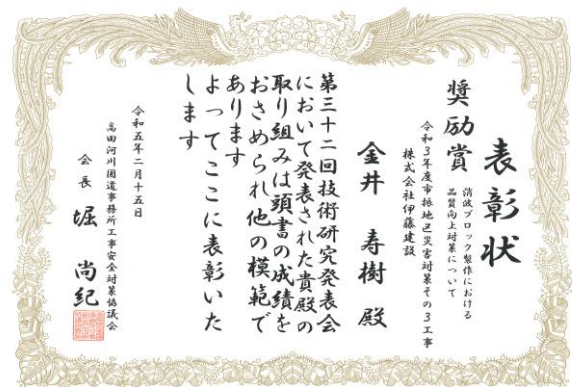 表彰状
奨励賞
消波ブロック製作における
品質向上対策について
令和3年度市振地区災害対策その3工事
株式会社伊藤建設
金井 寿樹 殿
第三十二回技術研究発表会
において発表された貴殿の
取り組みは頭書の成績を
おさめられ他の模範で
あります
よってここに表彰いた
します
令和五年二月十五日
高田河川国道事務所工事安全対策協議会
会長 堀 尚紀